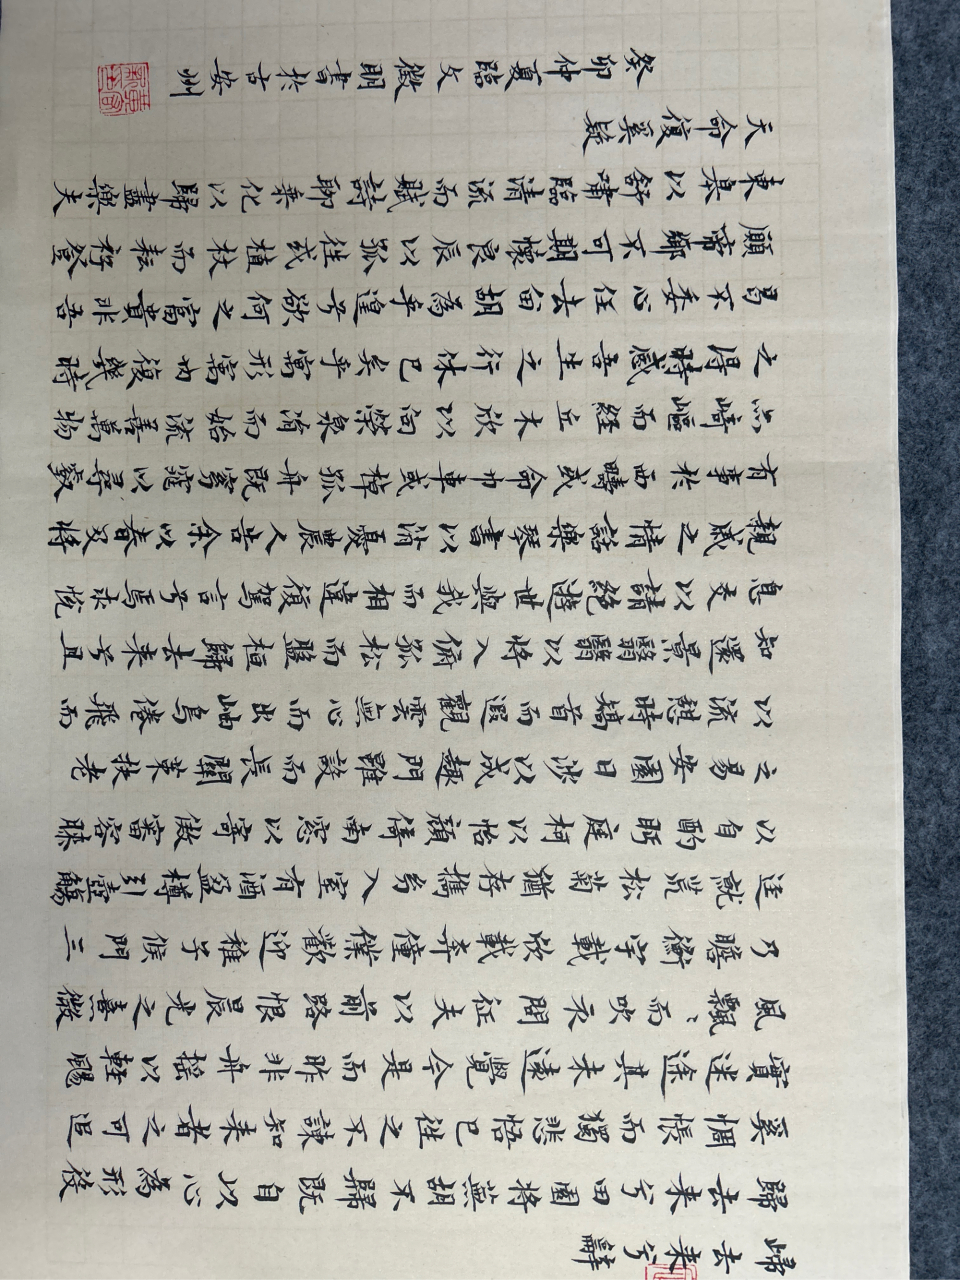 歸去来兮辭
歸去来兮田園將蕪胡不歸既自以心為形役
奚惆悵而獨悲悟已往之不諫知来者之可追
實迷途其未遠覺今是而昨非舟摇以輕颺
風飄〻而吹衣問征夫以前路恨晨光之熹微
乃瞻衡宇載欣載奔僮僕歡迎稚子候門三
逕就荒松菊猶存携幼入室有酒盈樽引壺觴
以自酌眄庭柯以怡顔倚南窓以寄傲審容膝
之易安園日涉以成趣門雖設而長關策扶老
以流憩時矯首而遐觀雲無心而出岫鳥倦飛而
知還景翳翳以將入孤松而盤桓歸去来兮且
息交以請絕遊世與我而相違復駕言兮焉求悅
親戚之情話樂琴書以消憂農人告余以春及將
有事於西疇或命巾車或棹孤舟既窈窕以尋壑
亦崎嶇而經丘木欣以向榮泉涓而始流善萬物
之得時感吾生之行休已矣乎寓形寓內復幾時
曷不委心任去留胡為乎遑兮欲何之富貴非吾
願帝鄉不可期懷良辰以孤往或植杖而耘耔登
東皋以舒嘯臨清流而賦詩聊乘化以歸盡樂夫
天命復奚疑
癸卯仲夏臨文徵明書於吉安州